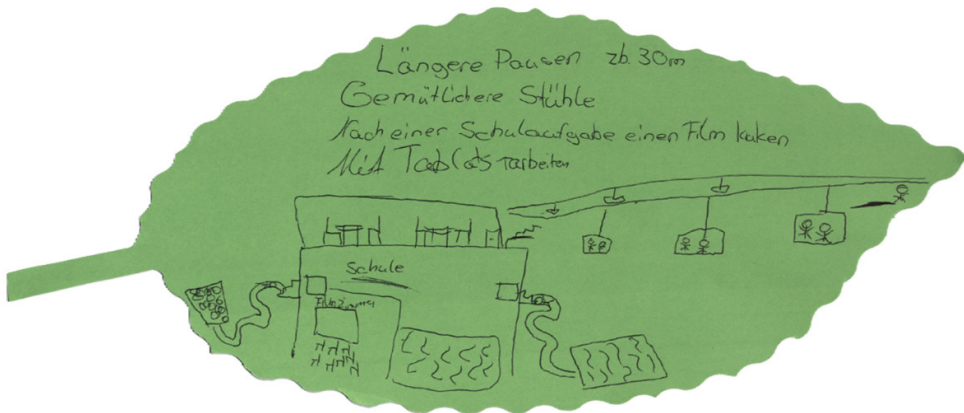 Längere Pausen zb. 30m
Gemütlichere Stühle
Nach einer Schulaufgabe einen Film kuken
Mit Tablets arbeiten
Schule
Filmzimmer